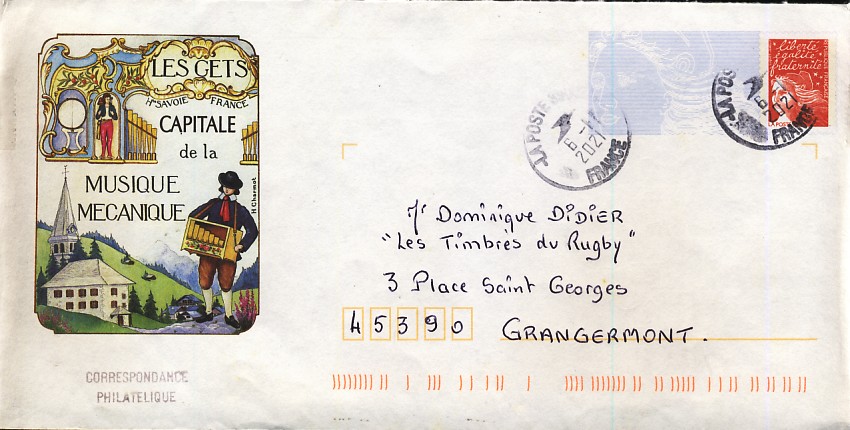 LES GETS
Hte SAVOIE FRANCE
CAPITALE
de la
MUSIQUE
MECANIQUE
H Charmot
liberté
égalité
fraternité
LA POSTE
LA POSTE
6 - 2021
FRANCE
LA POS
6 2021
FRANCE
Mr Dominique DIDIER
"Les Timbres du Rugby"
3 Place Saint Georges
45390 GRANGERMONT.
CORRESPONDANCE
PHILATELIQUE